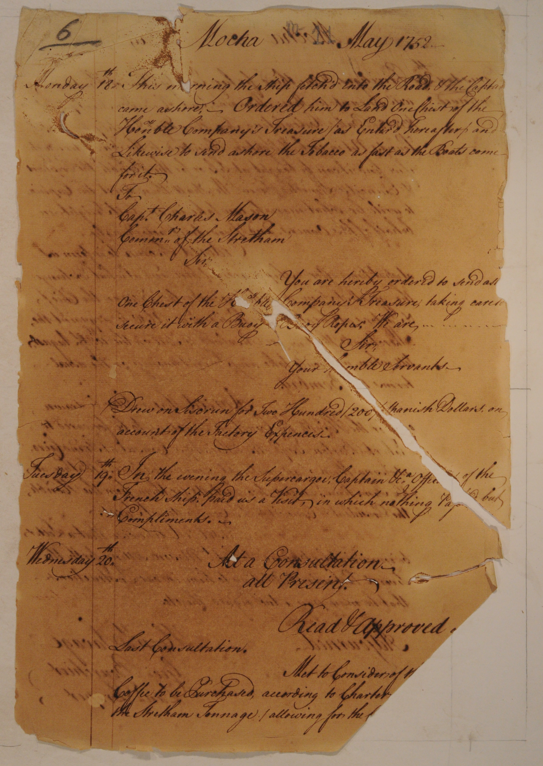 6
Mocha May 1752
Monday 18th This morning the Ship fetched into the Road & the Capta
came ashore, Ordered him to Land One Chest of the
Honble Company's Treasure (as Enter'd hereafter) and
Likewise to send ashore the Tobacco as fast as the Boats come
for it
To
Capt. Charles Mason
Comm. of the Stretham
Sir,
You are hereby ordered to send as
One Chest of the Honble Company's Treasure, taking care
secure it with a Buoy Ropes, We are,
Sir
Your humble Servants
Drew on for Two Hundred (200) Spanish Dollars on
account of the Factory Expences.
Tuesday 19th In the evening the Supercargoes, Captain &ca Officers of the
French Ship, paid us a Visit, in which nothing but
Compliments.
Wednesday 20th At a Consultation
all Present
Read & Approved
Last Consultation.
Met to Consider of
Coffee to be Purchased, according to Charter
the Stretham Tonnage (allowing for the